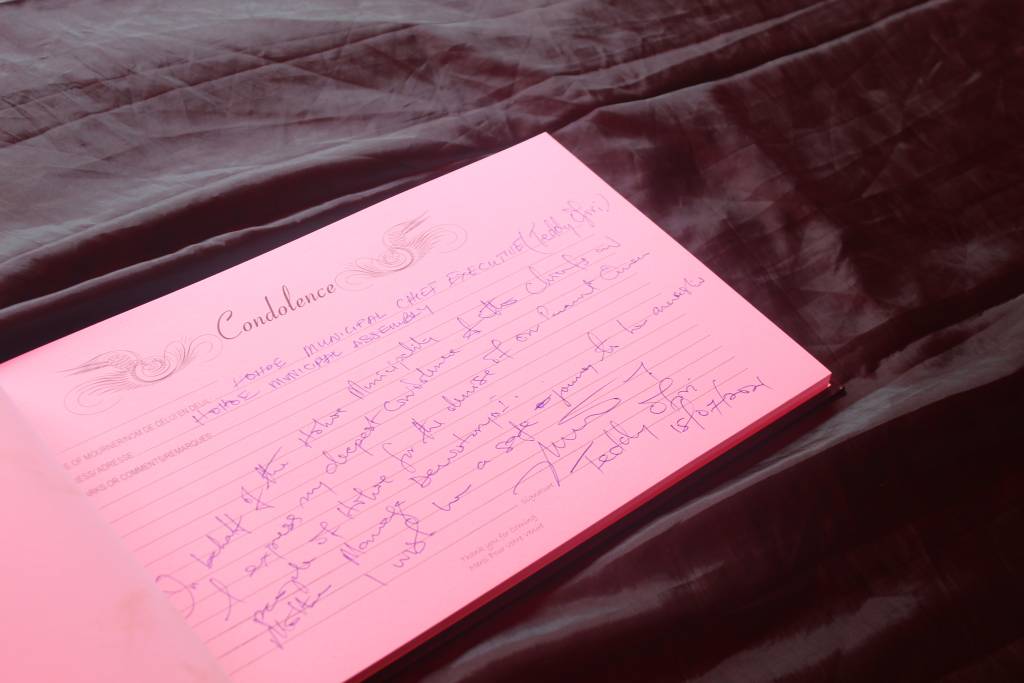 Condolence
HOHOE MUNICIPAL CHIEF EXECUTIVE (Teddy Ofori)
HOHOE MUNICIPAL ASSEMBLY
OF MOURNER/NOM DE DELU EN DEUIL
ESS/ ADRESSE
RKS OR COMMENTS/REMARQUES
On behalf of the Hohoe Municipality
I express my deepest Condolence to the chiefs and
people of Hohoe for the demise of our Paramount Queen
Mother
I wish her a safe journey to
Signature
Teddy Ofori
15/07/2021
Thank you for coming
Merci Pour votre venue